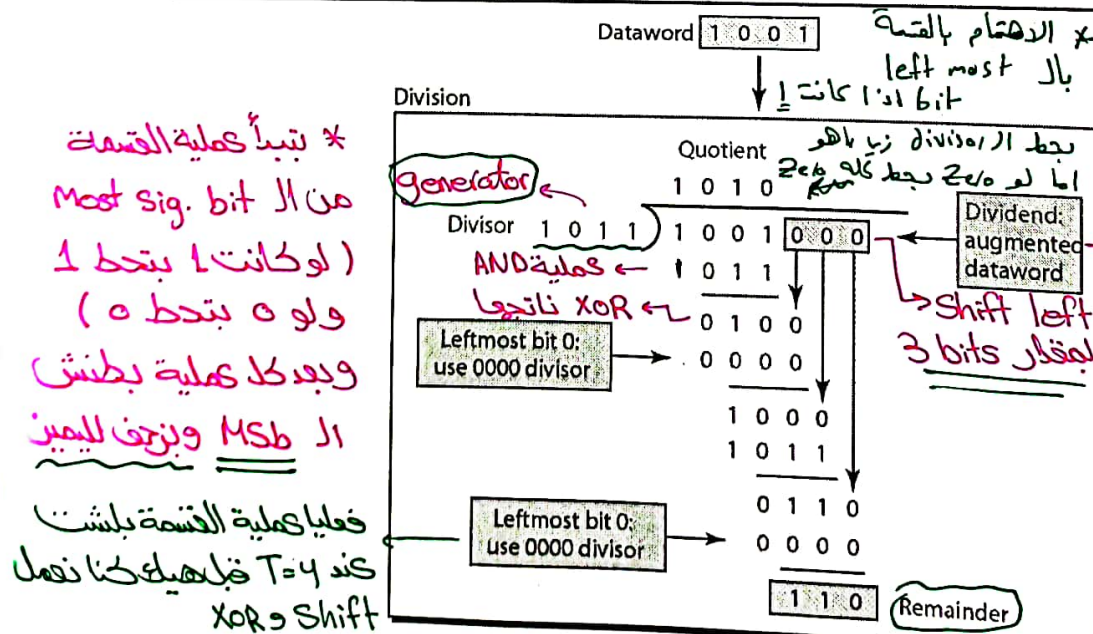 Dataword 1 0 0 1
* الاهتمام بالقسمة
بال left most
bit اذا كانت 1
بحط ال divisor زي ماهو
اما لو Zero بحط كله Zero
Division
Quotient
1 0 1 0
generator
Divisor 1 0 1 1
1 0 0 1 0 0 0
Dividend:
augmented
dataword
عملية AND
1 0 1 1
ناتجها XOR
0 1 0 0
Shift left
بمقدار 3 bits
Leftmost bit 0:
use 0000 divisor
0 0 0 0
1 0 0 0
1 0 1 1
0 1 1 0
Leftmost bit 0:
use 0000 divisor
0 0 0 0
1 1 0
Remainder
* تبدأ عملية القسمة
من ال Most Sig. bit
( لو كانت 1 بتحط 1
ولو 0 بتحط 0 )
وبعد كل عملية بطنش
ال MSb وبزحف لليمين
فعليا عملية القسمة بلشت
عند T=4 قبل هيك كنا نعمل
Shift و XOR